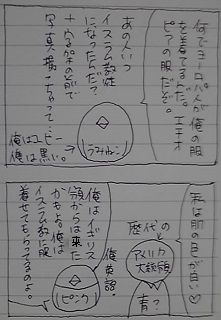 何でヨーロパ人が俺の服
を着てるんだ。エチオ
ピアの服だぞ。
あの人いつ
イスラム教姓
になったんだ?
十字架の前で
写真撮っちゃって
うみねこ
俺はコーヒー
俺は黒い。
私は肌の色が白い♡
歴代の
アメリカ
大統領
青?
俺はイギリス
領からは来た
かもよ。俺は
イスラム教に服
着せてもらってるのよ。
俺英語。
ピンク